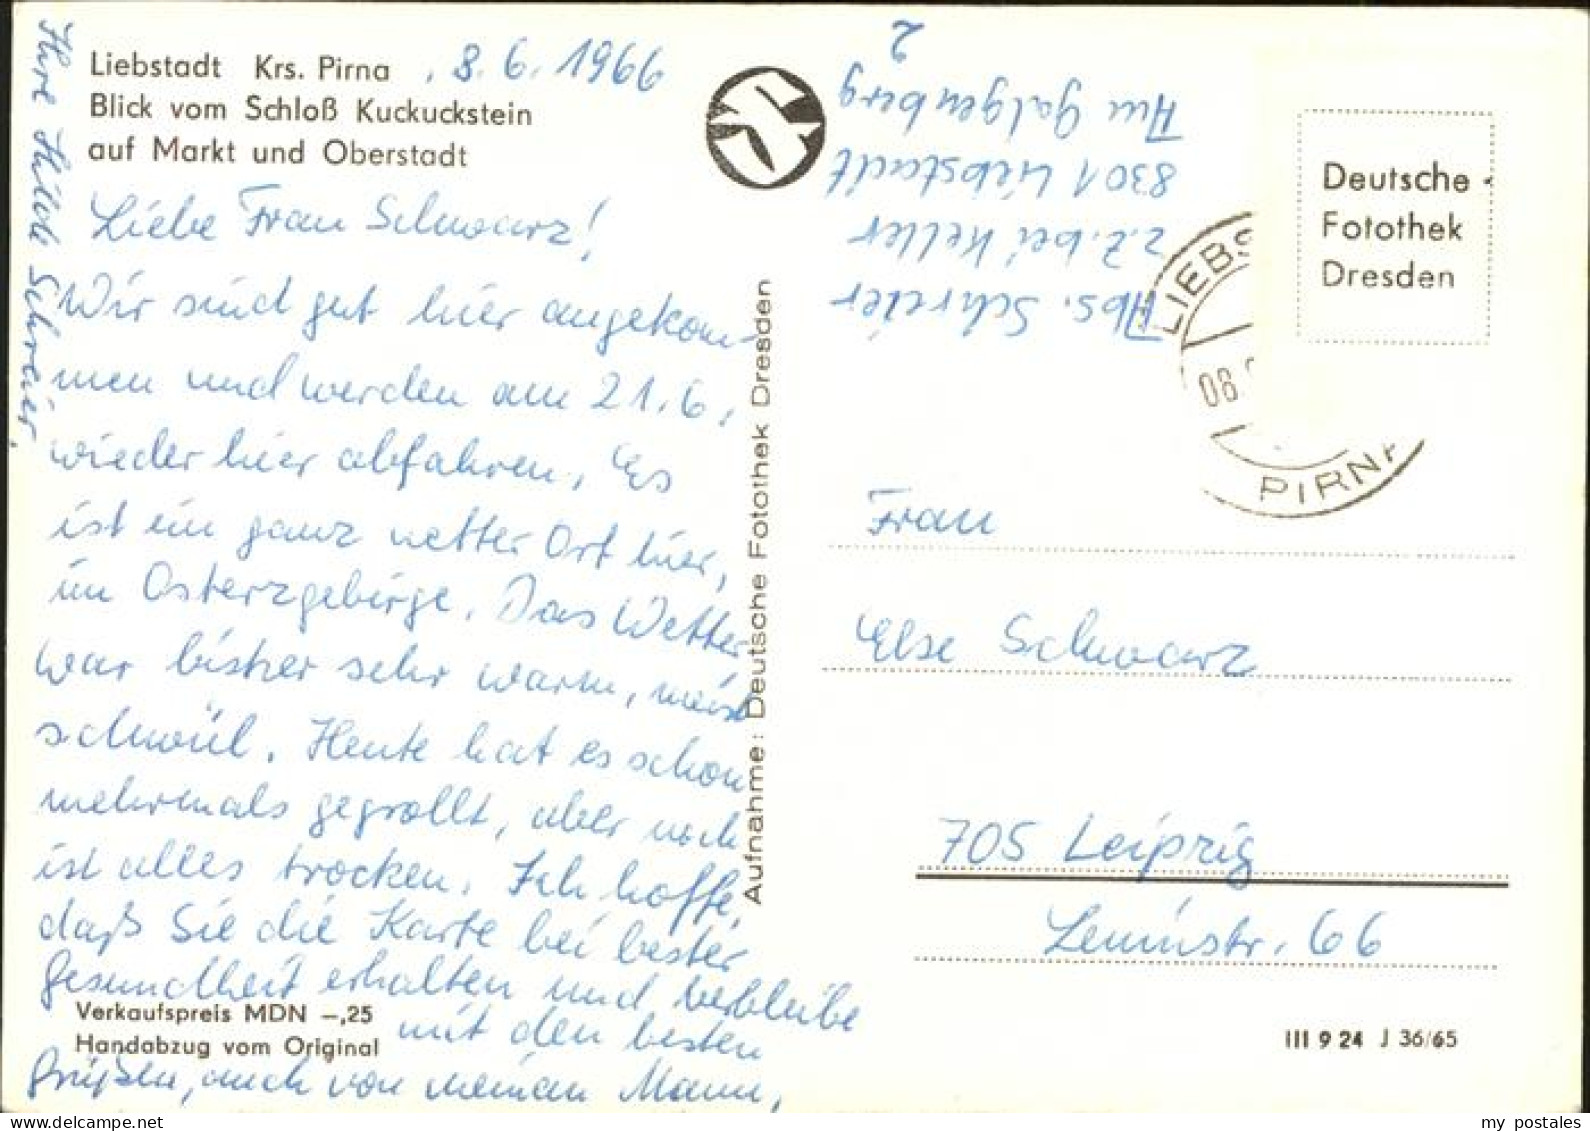 Liebstadt Krs. Pirna , 8. 6. 1966
Blick vom Schloß Kuckuckstein
auf Markt und Oberstadt
Liebe Frau Schwarz!
Wir sind gut hier angekom-
men und werden am 21. 6.
wieder hier abfahren. Es
ist ein ganz netter Ort hier,
im Osterzgebirge. Das Wetter
war bisher sehr warm, meist
schwül. Heute hat es schon
mehrmals gegrollt, aber noch
ist alles trocken. Ich hoffe,
daß Sie die Karte bei bester
Gesundheit erhalten und verbleibe
mit den besten
Grüßen, auch von meinem Mann,
Ihre Hilde Schreier.
Verkaufspreis MDN –,25
Handabzug vom Original
Aufnahme: Deutsche Fotothek Dresden
Abs. Schreier
z. Z. bei Keller
8301 Liebstadt
Am Galgenberg
2
Deutsche
Fotothek
Dresden
LIEBS
08
PIRNA
Frau
Else Schwarz
705 Leipzig
Leninstr. 66
III 9 24 J 36/65
my postales